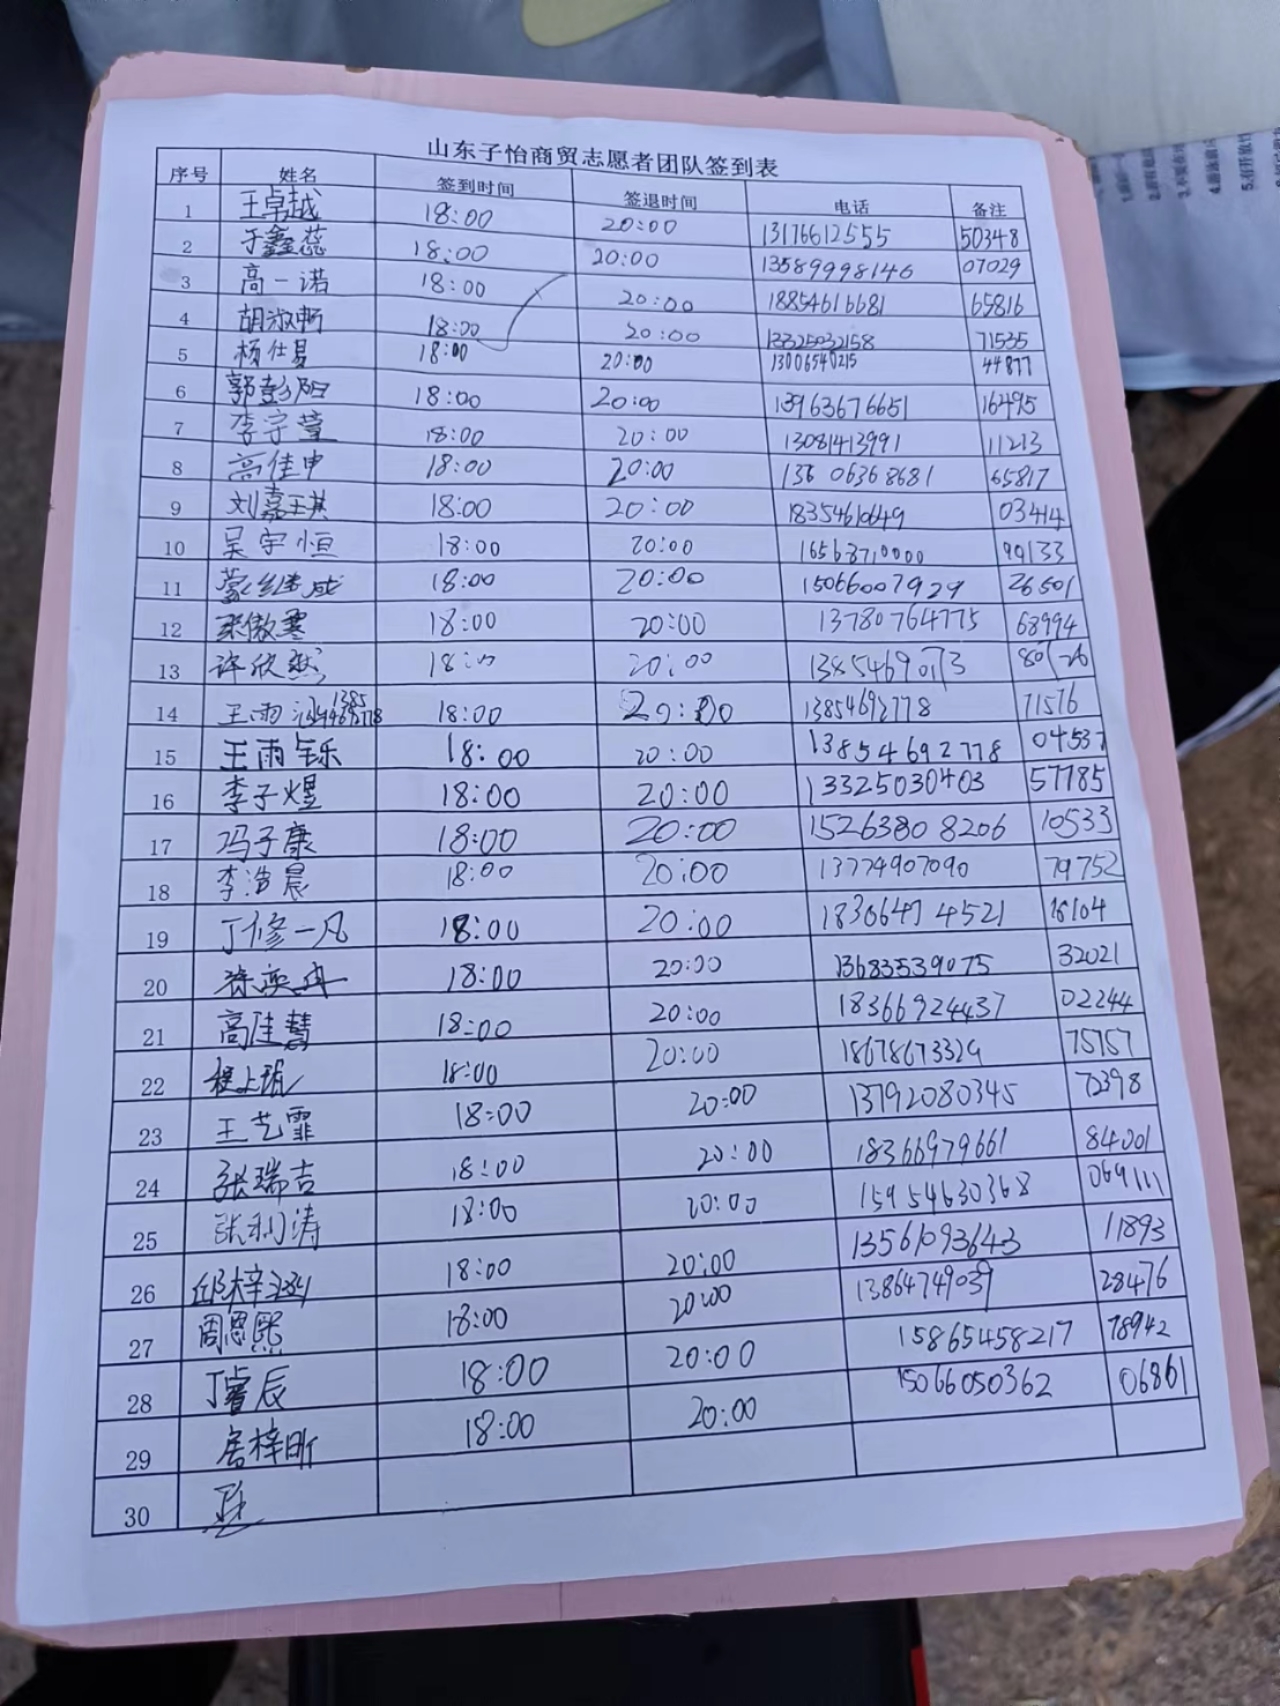 山东子怡商贸志愿者团队签到表
序号 姓名 签到时间 签退时间 电话 备注
1 王卓越 18:00 20:00 13176612555 50348
2 于鑫蕊 18:00 20:00 13589998146 07029
3 高一诺 18:00 20:00 18854616681 65816
4 胡淑畅 18:00 20:00 13325032158 71535
5 杨仕易 18:00 20:00 13006540215 44877
6 郭彭阳 18:00 20:00 13963676651 16495
7 李宇萱 18:00 20:00 13081413991 11213
8 高佳申 18:00 20:00 13606368681 65817
9 刘嘉琪 18:00 20:00 18354610649 03414
10 吴宇恒 18:00 20:00 16568710000 99133
11 18:00 20:00 15066007929 26501
12 傲寒 18:00 20:00 13780764775 68994
13 许欣然 18:00 20:00 13854690173
14 王雨 18:00 20:00 13854692778 71576
15 王雨铄 18:00 20:00 13854692778 04537
16 李子煜 18:00 20:00 13325030403 57785
17 冯子康 18:00 20:00 15263808206 10533
18 李浩晨 18:00 20:00 13774907090 79752
19 丁修一凡 18:00 20:00 18306474521 18104
20 18:00 20:00 13683539075 32021
21 高佳慧 18:00 20:00 18366924437 02244
22 18:00 20:00 18678673329 75757
23 王艺霏 18:00 20:00 13792080345 72398
24 张瑞吉 18:00 20:00 18366979661 84001
25 张利涛 18:00 20:00 15954630368 069111
26 邱梓 18:00 20:00 13561093643 11893
27 周恩熙 18:00 20:00 13864749039 28476
28 丁睿辰 18:00 20:00 15865458217 78942
29 居梓昕 18:00 20:00 15066050362 06861
30